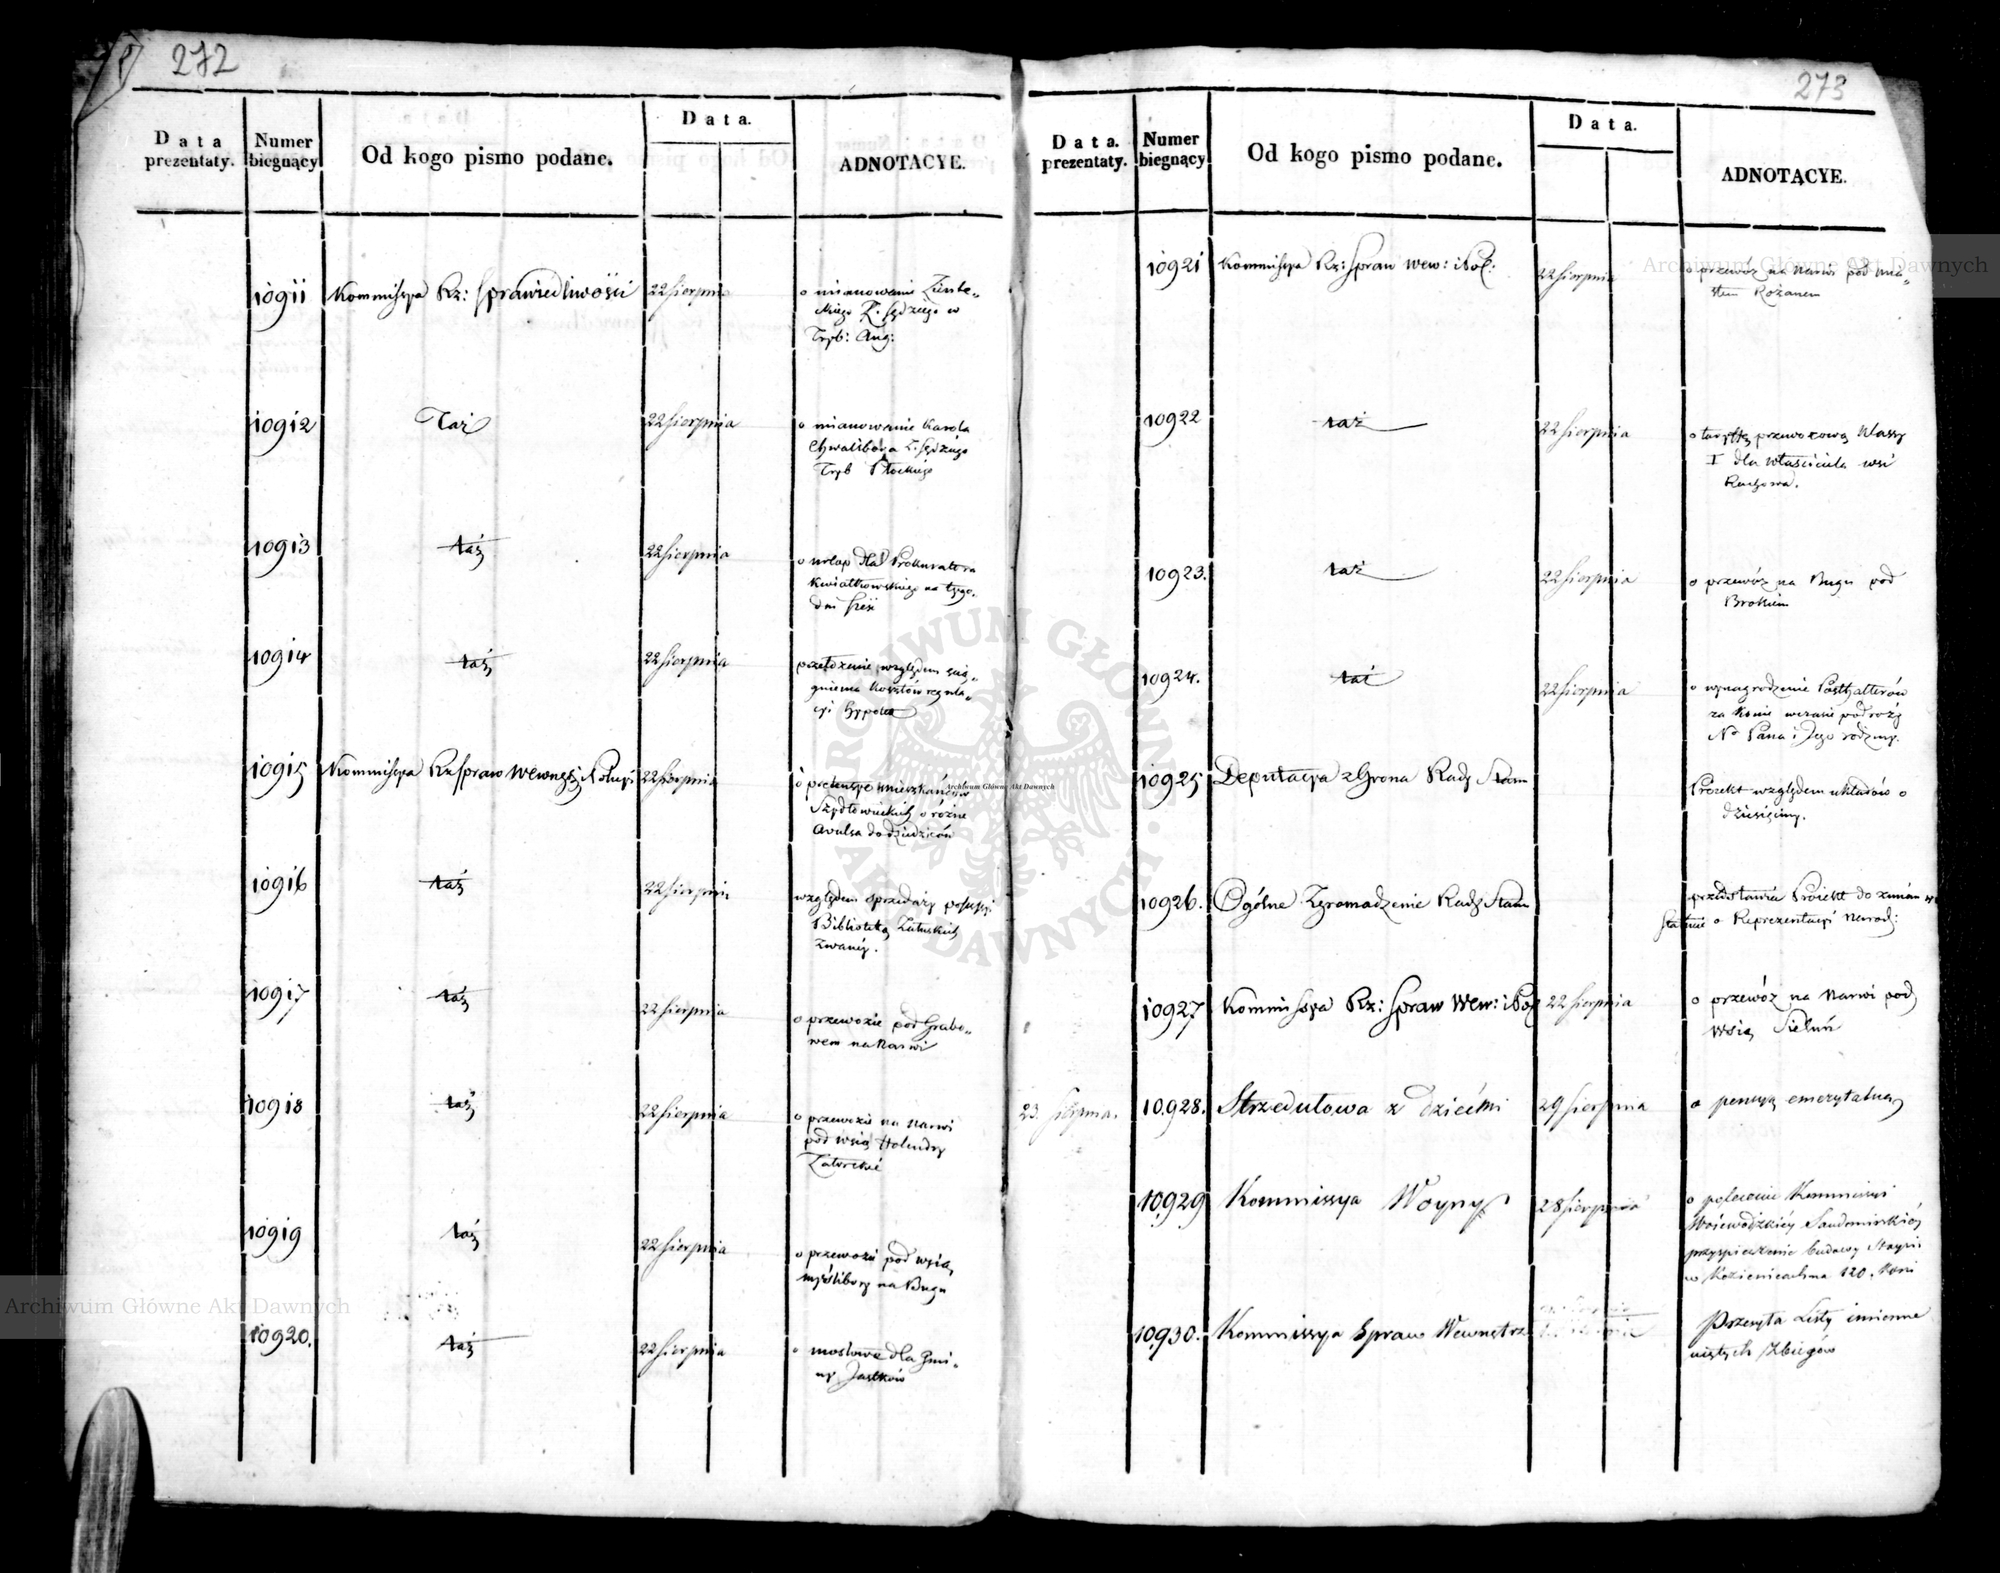 272
Data prezentaty.
Numer biegnący
Od kogo pismo podane.
Data.
ADNOTACYE.
10911 Kommissya Rz: Sprawiedliwości 22 Sierpnia o mianowanie
Z. Sędziego w
Tryb: Aug:
10912 Taż 22 Sierpnia o mianowanie Karola
Chwaliboga Z. Sędziego
Tryb Płockiego
10913 taż 22 Sierpnia o urlop dla Prokuratora
Kwiatkowskiego na tygo-
dni sześć
10914 taż 22 Sierpnia przełożenie względem ścią-
gnienia kosztów regula-
cyi hypotek
10915 Kommissya Rz Spraw Wewnętrz i Policyi 22 Sierpnia o pretensye mieszkańców
Szydłowieckich o różne
Avulsa do dziedziców
10916 taż 22 Sierpnia względem sprzedaży possessyi
Biblioteką Załuskich
Zwanéy.
10917 taż 22 Sierpnia o przewozie pod Grabo-
wem na Narwi
10918 taż 22 Sierpnia o przewozie na Narwi
pod wsią Holendry
Zatorskie
10919 taż 22 Sierpnia o przewozie pod wsią
Myślibory na Bugu
10920. taż 22 Sierpnia o mostowe dla Gmi-
ny Jastków
273
Data. prezentaty.
Numer biegnący
Od kogo pismo podane.
Data.
ADNOTACYE.
10921 Kommissya Rz: Spraw Wew: i Pol: 22 Sierpnia o przewóz na Narwi pod mia-
stem Rożanem
10922 taż 22 Sierpnia o taryffę przewozową Klassy
I dla właściciela wsi
Rachowa.
10923. taż 22 Sierpnia o przewóz na Bugu pod
Brokiem
10924. taż 22 Sierpnia o wynagrodzenie Poszthalterów
za konie w czasie podróży
No Pana i Jego rodziny.
10925 Deputacya z Grona Rady Stanu Proiekt względem układów o
dziesięciny.
10926. Ogólne Zgromadzenie Rady Stanu przedstawia Proiekt do zmian w
Statucie o Reprezentacyi Narod:
10927 Kommissya Rz: Spraw Wew: i Pol 22 Sierpnia o przewóz na Narwi pod
wsią Sieluń
23 Sierpnia. 10.928. Strzedułowa z dziećmi 29 Sierpnia o pensyą emerytalną
10929 Kommissya Woyny 28 Sierpnia o polecenie Kommissyi
Woiewódzkiéy Sandomirskiéy
przyspieszenie budowy Stayni
w Kozienicach na 120. Koni
10930. Kommissya Spraw Wewnętrz Przesyła Listy imienne
ujętych Zbiegów
Archiwum Główne Akt Dawnych
Archiwum Główne Akt Dawnych
Archiwum Główne Akt Dawnych
ARCHIWUM GŁÓWNE AKT DAWNYCH